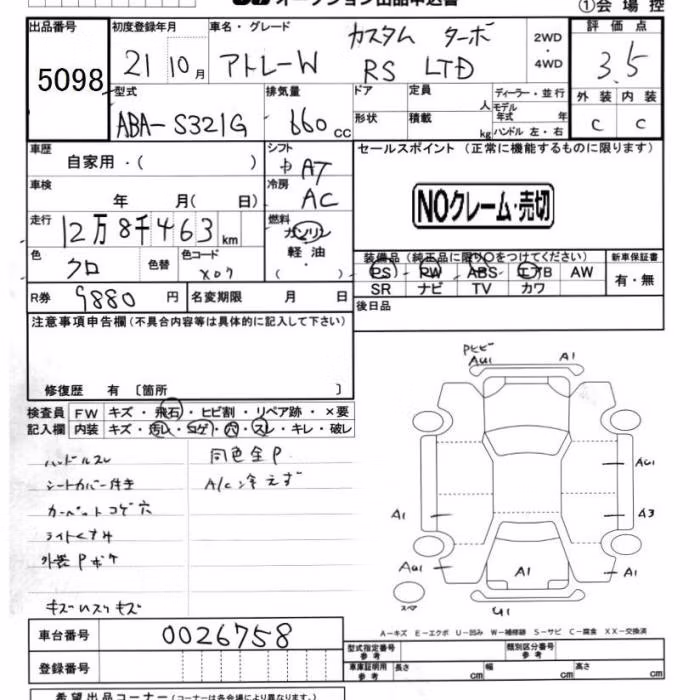 ①会場控
出品番号 初度登録年月 車名・グレード 評価点
5098 21 10月 アトレーW カスタム ターボ RS LTD 2WD・4WD 3.5
型式 排気量 ドア 定員 人 ディーラー・並行 外装 内装
ABA-S321G 660cc 形状 積載 kg モデル年式 年 ハンドル 左・右 C C
車歴 自家用・( ) シフト AT セールスポイント (正常に機能するものに限ります)
車検 年 月( 日) 冷房 AC
NOクレーム・売切
走行 12万8千463km 燃料 ガソリン 軽油 ・( )
装備品 (純正品に限り○をつけてください) 新車保証書
色 クロ 色替 色コード X07
PS PW ABS エアB AW 有・無
SR ナビ TV カワ
R券 9880円 名変期限 月 日 後日品
注意事項申告欄(不具合内容等は具体的に記入して下さい)
修復歴 有 〔箇所 〕
検査員 FW キズ・飛石・ヒビ割・リペア跡・×要
記入欄 内装 キズ・汚し・コゲ・穴・スレ・キレ・破レ
ハンドルスレ 同色全P
シートカバー付き A/C冷えず
カーペットコゲ穴
ライトくすみ
外装Pボケ
A1
A1
A3
A1 A1
スペア
U1
A-キズ E-エクボ U-凹み W-補修跡 S-サビ C-腐食 XX-交換済
車台番号 0026758
型式指定番号 参考 類別区分番号 参考
登録番号 車庫証明用 参考 長さ cm 幅 cm 高さ cm
希望出品コーナー(コーナーは各会場により異なります。)